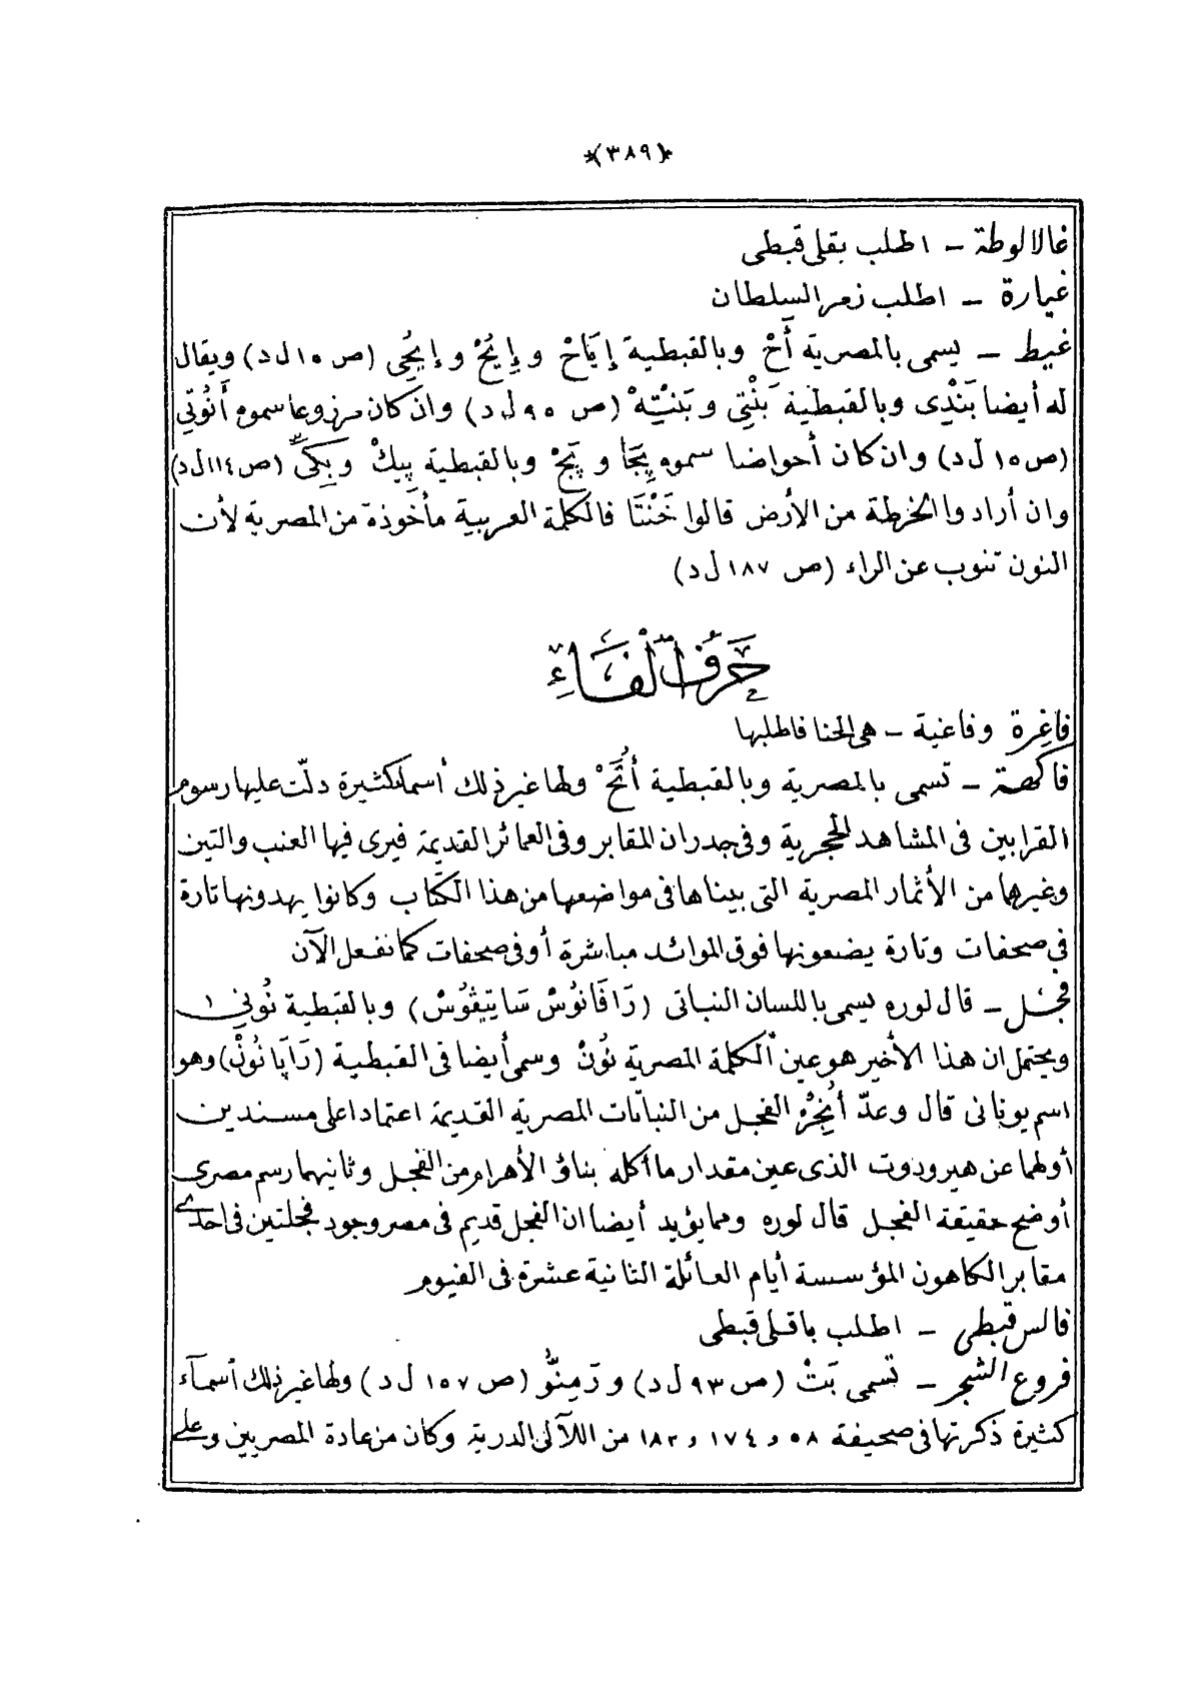 *(٣٨٩)*
غالالوطة ــ اطلب بقلى قبطى
غيارة ــ اطلب زمر السلطان
غيط ــ يسمى بالمصرية أَحْ وبالقبطية إِيَاحْ و إِيُحْ و إيُحِى (ص ١٥ ل د) ويقال
له أيضا بَنْدِى وبالقبطية بَنْتِى و بَنْتِهْ (ص ٩٥ ل د) وان كان مزروعا سموه أَنُوتِّى
(ص ١٥ ل د) وان كان أحواضا سموه پِجَا و پَجْ وبالقبطية پِيكْ و پِكىّ (ص ١١٤ ل د)
وان أرادوا الخرطة من الأرض قالوا خَنْتَا فالكلمة العربية مأخوذة من المصرية لأن
النون تنوب عن الراء (ص ١٨٧ ل د)
حَرفُ الْفَاءِ
فاغِرة وفاغية ــ هى الحنا فاطلبها
فاكهة ــ تسمى بالمصرية وبالقبطية أُتَحْ ولها غير ذلك أسماء كثيرة دلّت عليها رسوم
القرابين فى المشاهد الحجرية وفى جدران المقابر وفى العمائر القديمة فيرى فيها العنب والتين
وغيرهما من الأثمار المصرية التى بيناها فى مواضعها من هذا الكتاب وكانوا يهدونها تارة
فى صحفات وتارة يضعونها فوق الموائد مباشرة أو فى صحفات كما نفعل الآن
فجل ــ قال لوره يسمى باللسان النباتى (رَافَانُوسْ سَاتِيڤُوسْ) وبالقبطية نُونِى
ويحتمل ان هذا الأخير هو عين الكلمة المصرية نُونْ وسمى أيضا فى القبطية (رَاپَا نُونْ) وهو
اسم يونانى قال وعدّ أُنْجِرْ الفجل من النباتات المصرية القديمة اعتمادا على مسندين
أولهما عن هيرودوت الذى عين مقدار ما أكله بناؤ الأهرام من الفجل وثانيهما رسم مصرى
أوضح حقيقة الفجل قال لوره ومما يؤيد أيضا ان الفجل قديم فى مصر وجود فجلتين فى احدى
مقابر الكاهون المؤسسة أيام العائلة الثانية عشرة فى الفيوم
فالس قبطى ــ اطلب باقلى قبطى
فروع الشجر ــ تسمى بَتْ (ص ٩٣ ل د) و رَمِنُو (ص ١٥٧ ل د) ولها غير ذلك أسمآء
كثيرة ذكرتها فى صحيفة ٥٨ و ١٧٤ و ١٨٢ من اللآلئ الدرية وكان من عادة المصريين وعلى